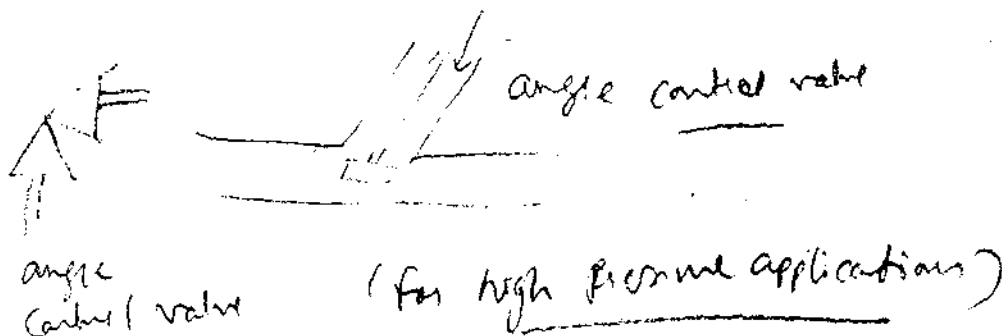 angle control valve
angle
control valve
(for high pressure applications)